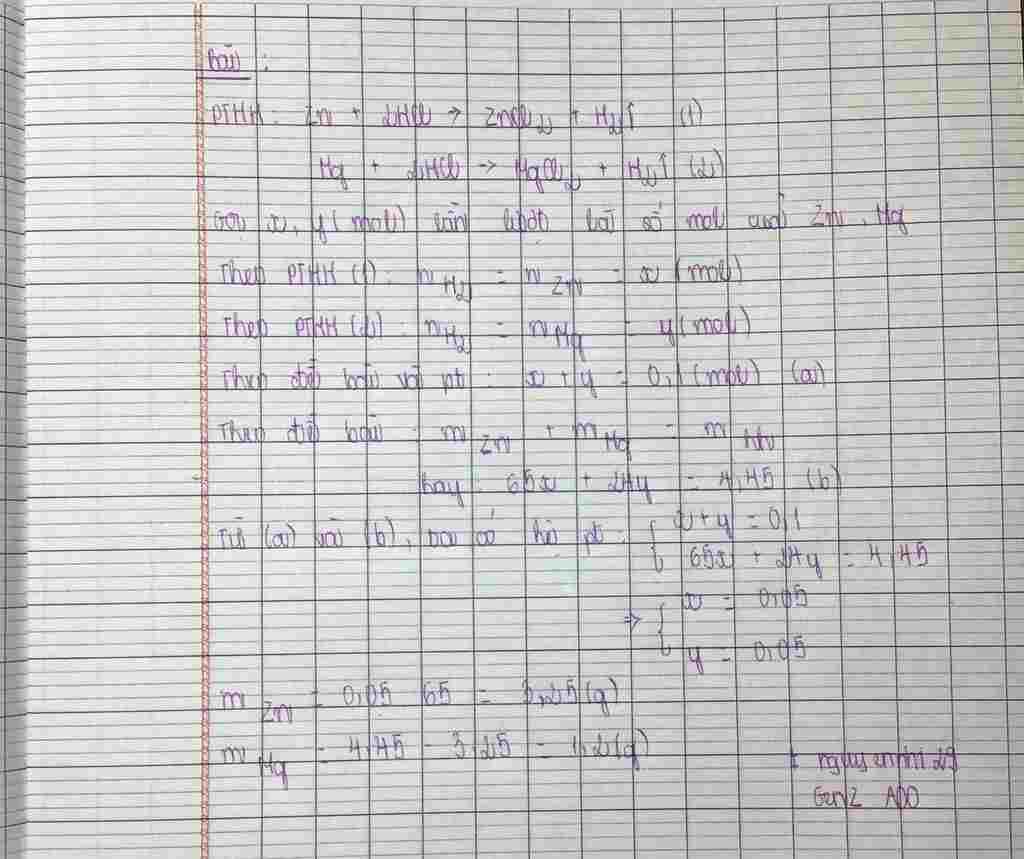 Bài :
PTHH: Zn + 2HCl → ZnCl2 + H2↑ (1)
Mg + 2HCl → MgCl2 + H2↑ (2)
Gọi x, y (mol) lần lượt là số mol của Zn, Mg
Theo PTHH (1): nH2 = nZn = x (mol)
Theo PTHH (2): nH2 = nMg = y (mol)
Theo đề bài và pt: x + y = 0,1 (mol) (a)
Theo đề bài: mZn + mMg = mhh
hay: 65x + 24y = 4,45 (b)
Từ (a) và (b), ta có hệ pt: { x + y = 0,1
65x + 24y = 4,45
⇒ { x = 0,05
y = 0,05
mZn = 0,05 . 65 = 3,25 (g)
mMg = 4,45 - 3,25 = 1,2 (g)
Gen Z ADD